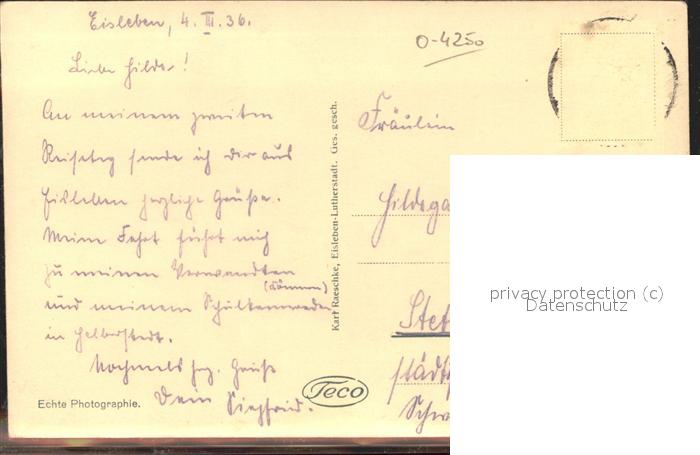 Eisleben, 4. III. 36.
O-4250
Liebe Hilde!
An meinem zweiten
Reisetag sende ich dir aus
Eisleben herzliche Grüße.
Meine Fahrt führt mich
zu meinen Verwandten
und meinem Schulkameraden
in Halberstadt.
Nochmals hrz. Grüße
Dein Siegfried.
Fräulein
Hildega
Stet
städt
Schw
Karl Raeschke, Eisleben-Lutherstadt. Ges. gesch.
Echte Photographie.
Teco
privacy protection (c)
Datenschutz